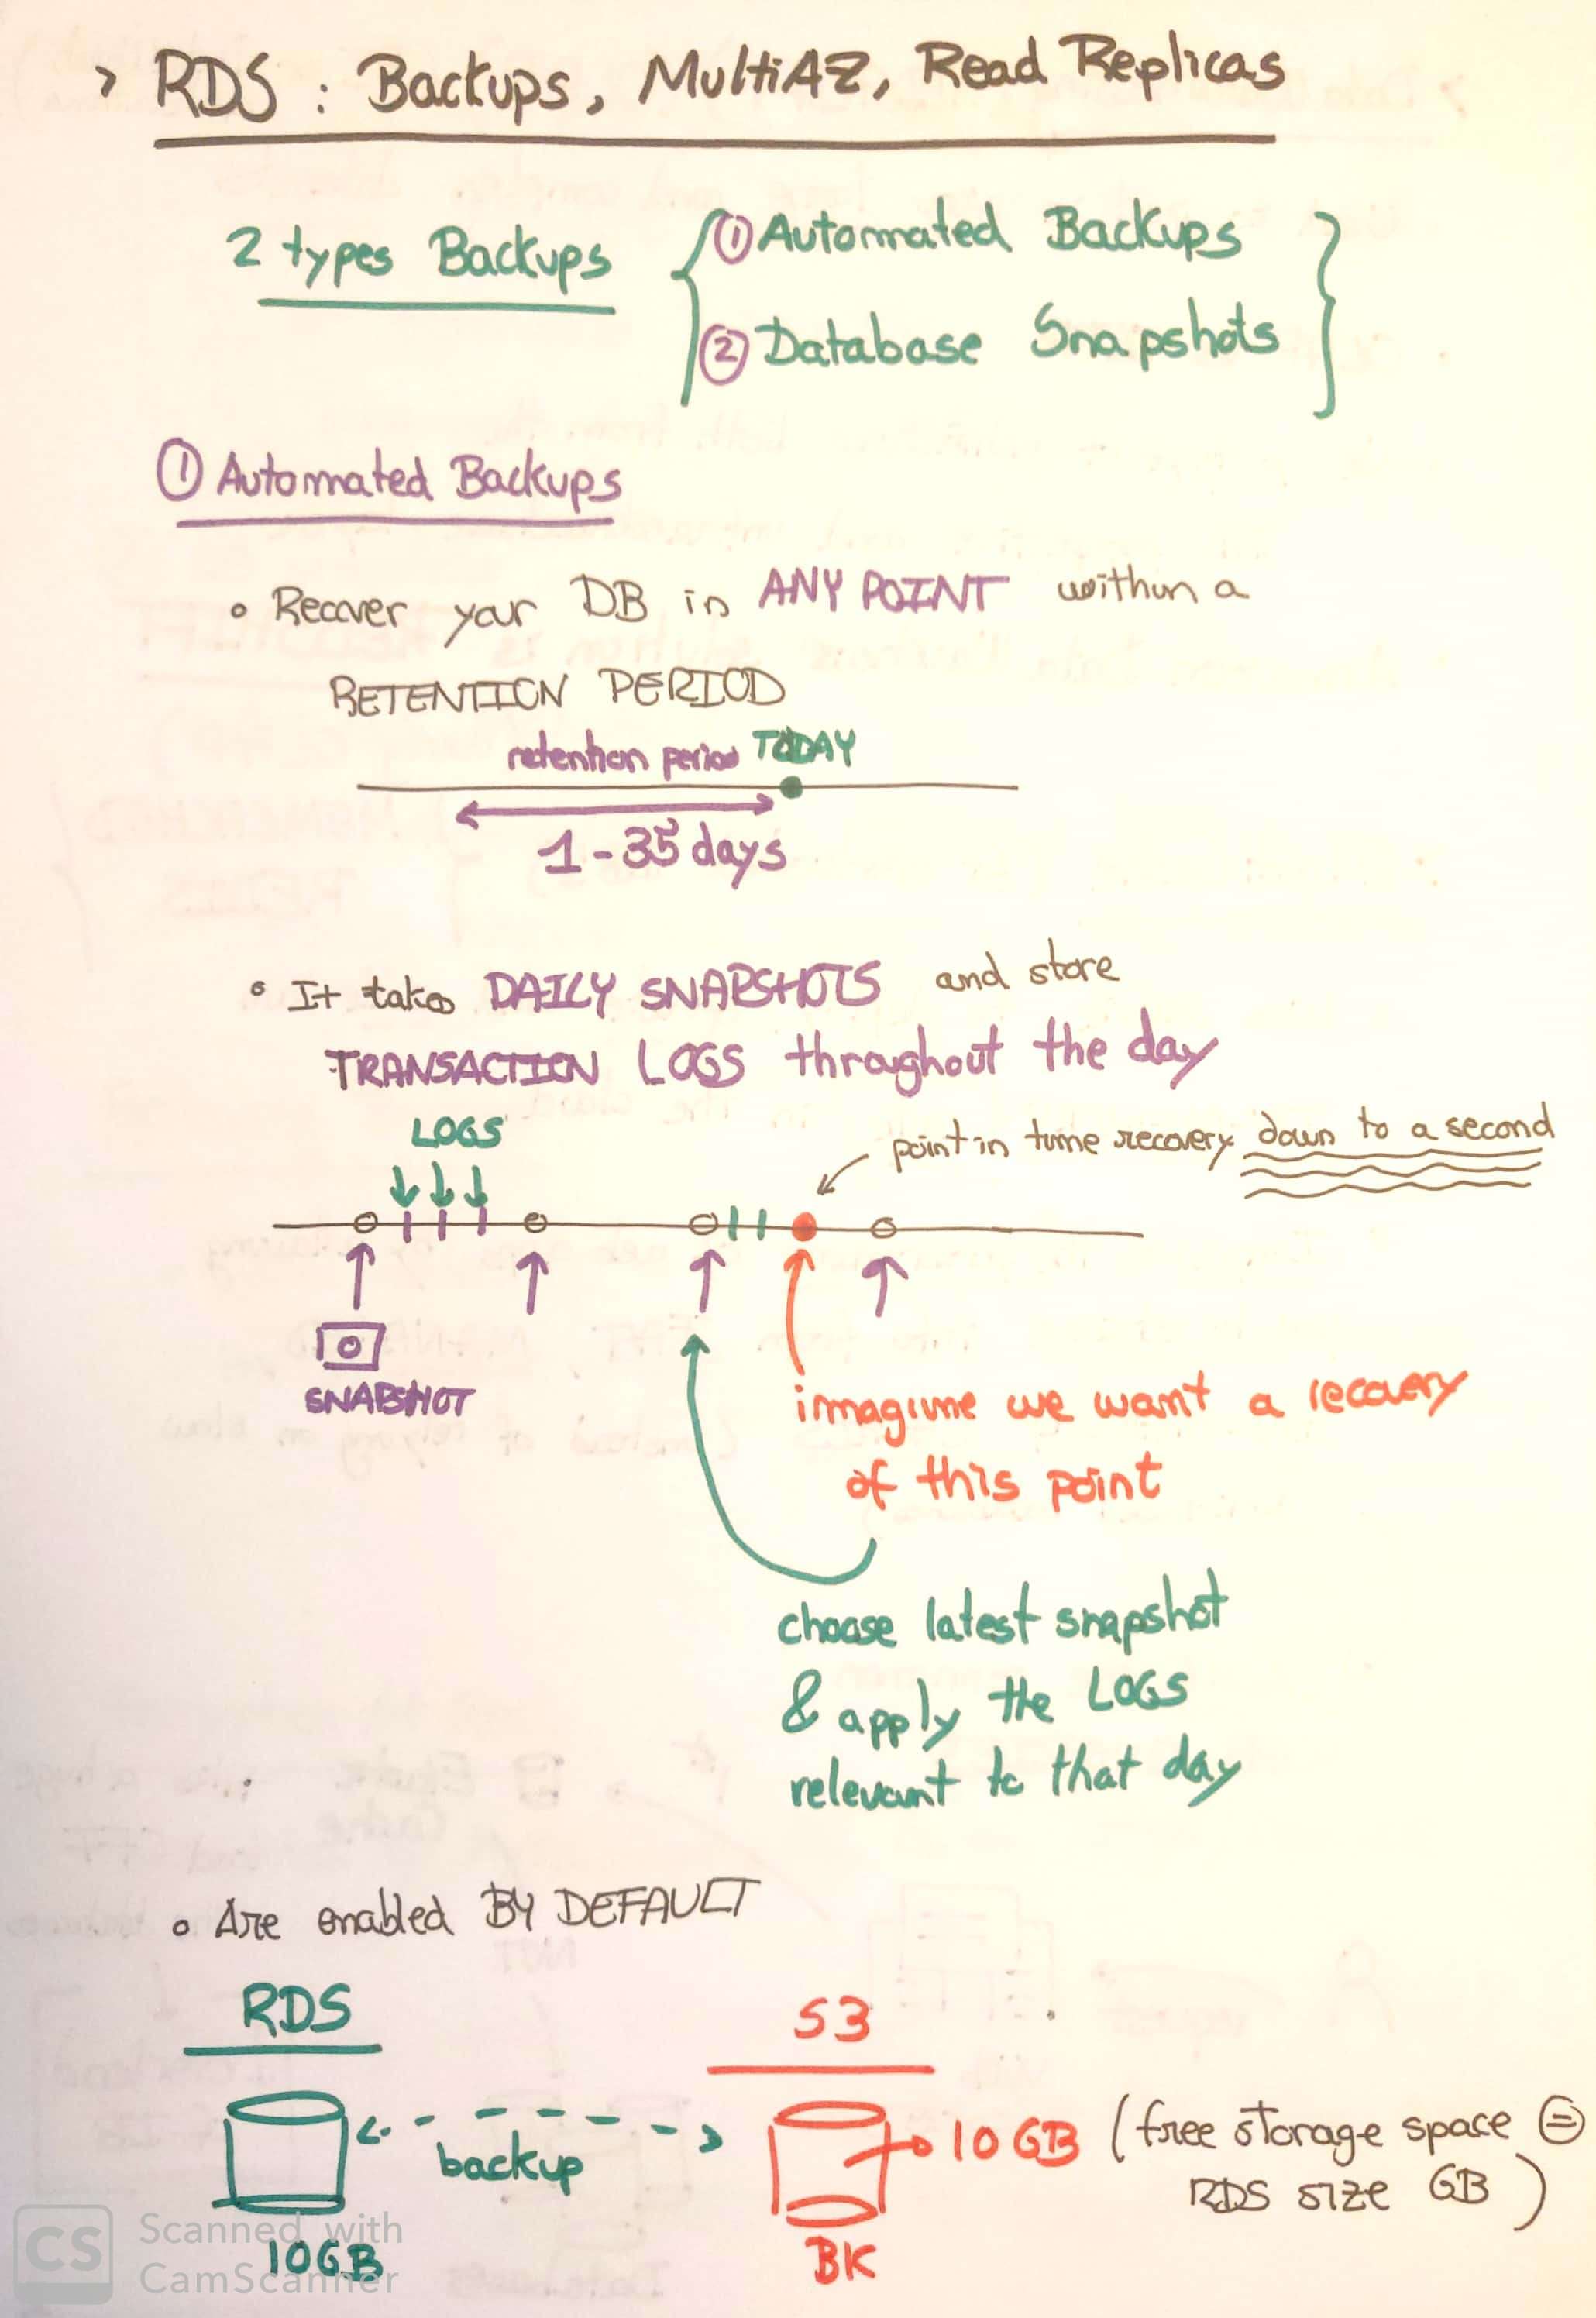 > RDS : Backups, MultiAZ, Read Replicas
2 types Backups
① Automated Backups
② Database Snapshots
① Automated Backups
• Recover your DB in ANY POINT within a
RETENTION PERIOD
retention period TODAY
1-35 days
• It takes DAILY SNAPSHOTS and store
TRANSACTION LOGS throughout the day
LOGS
point in time recovery down to a second
SNAPSHOT
imagine we want a recovery
of this point
choose latest snapshot
& apply the LOGS
relevant to that day
• Are enabled BY DEFAULT
RDS
S3
backup
10 GB (free storage space =
RDS size GB)
10GB
BK
CS
Scanned with
CamScanner